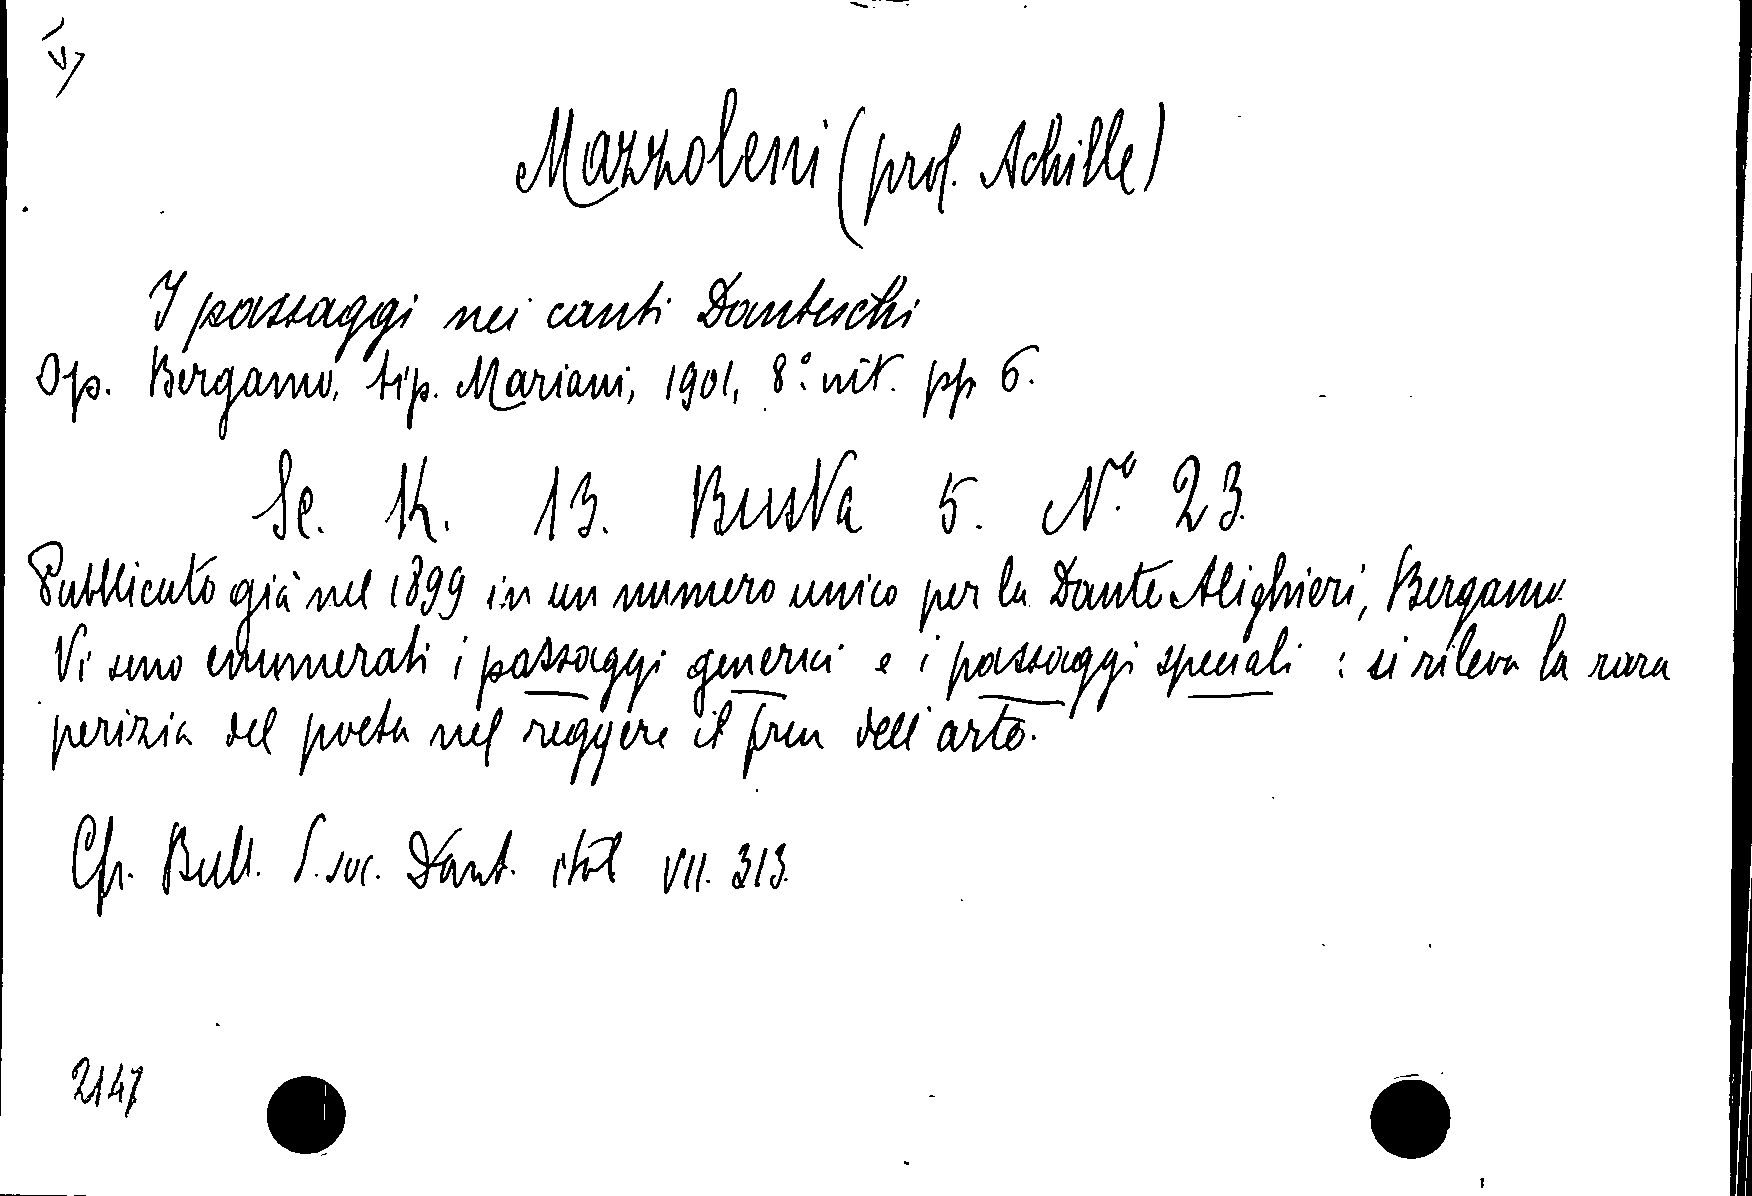 Mazzoleni (prof. Achille)
I passaggi nei canti Danteschi
Op. Bergamo, tip. Mariani, 1901, 8.° pp 6.
Sc. K. 13. Busta 5. N.° 23.
Pubblicato già nel 1899 in un numero unico per la Dante Alighieri, Bergamo.
Vi sono enumerati i passaggi generici e i passaggi speciali : si rileva la rara
perizia del poeta nel reggere il fren dell'arte.
Cfr. Bull. S. soc. Dant. ital VII. 313.
2147